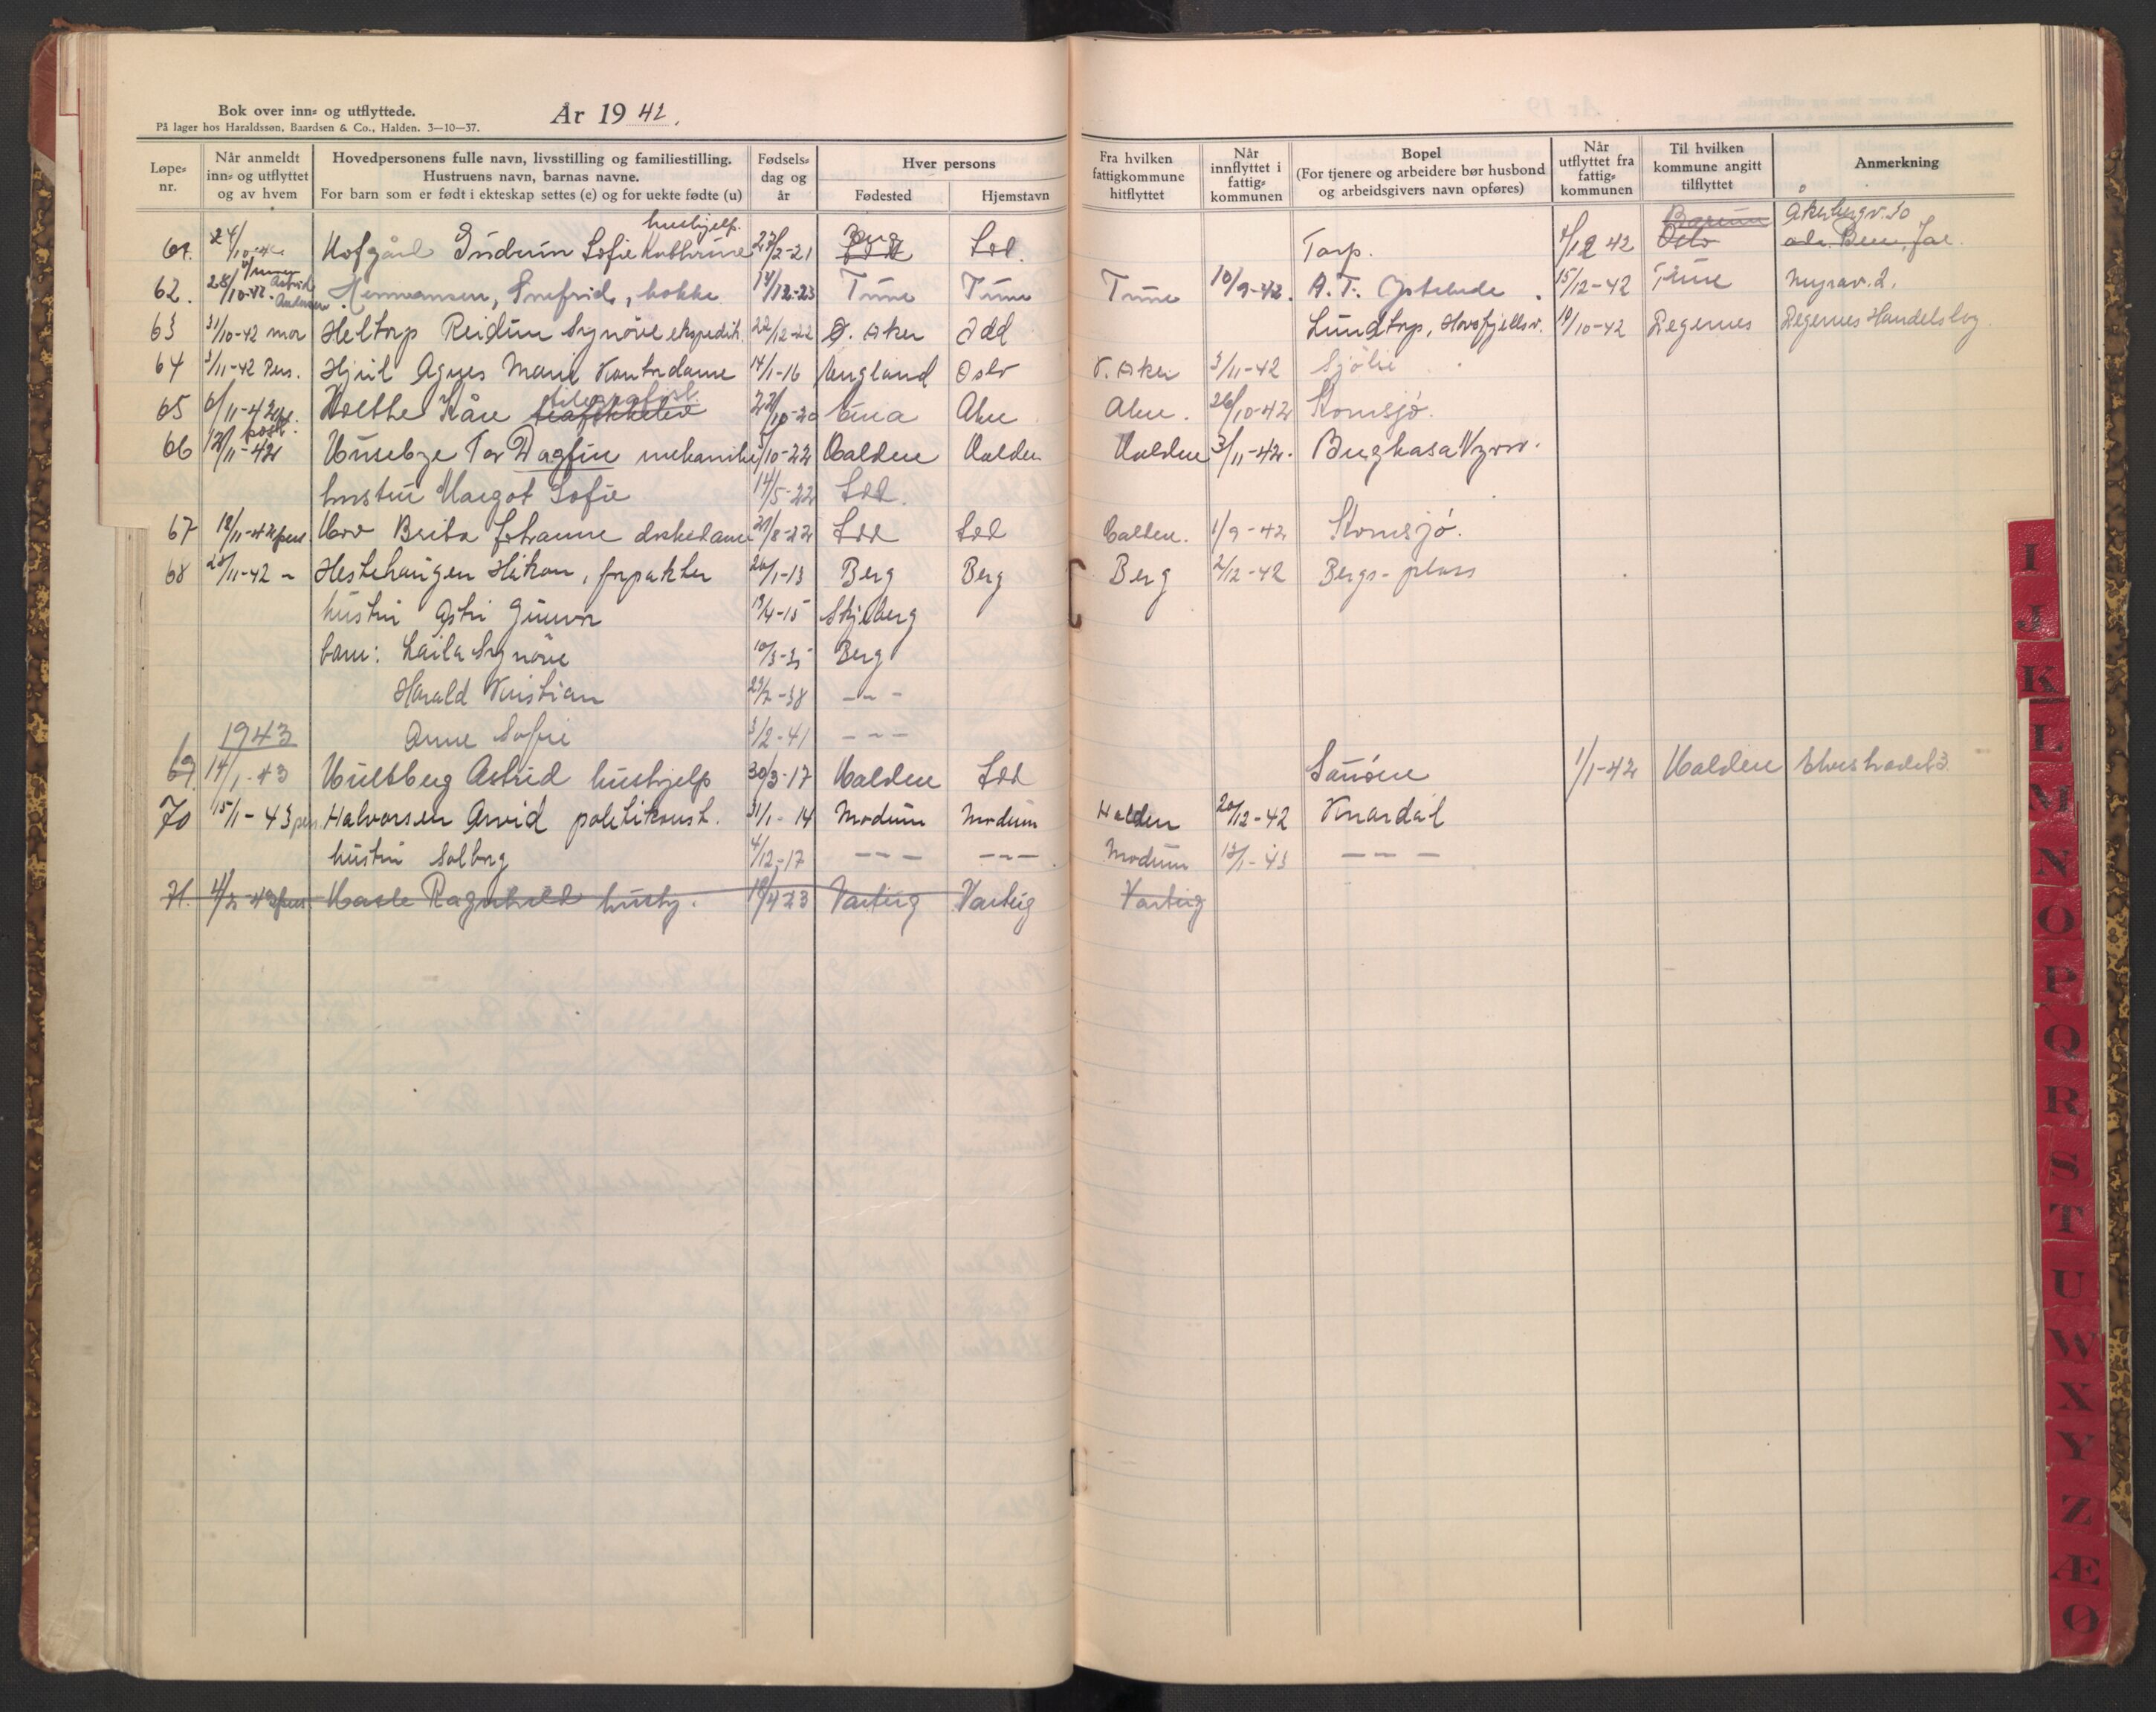 Bok over inn= og utflyttede.
På lager hos Haraldssøn, Baardsen & Co., Halden. 3—10—37.
År 1942.
Løpe= nr.
Når anmeldt inn= og utflyttet og av hvem
Hovedpersonens fulle navn, livsstilling og familiestilling.
Hustruens navn, barnas navne.
For barn som er født i ekteskap settes (e) og for uekte fødte (u)
Fødsels= dag og år
Hver persons
Fødested
Hjemstavn
Fra hvilken fattigkommune hitflyttet
Når innflyttet i fattig= kommunen
Bopel
(For tjenere og arbeidere bør husbond og arbeidsgivers navn opføres)
Når utflyttet fra fattig= kommunen
Til hvilken kommune angitt tilflyttet
Anmerkning
61. 24/10-42 Hofgård Gudrun Sofie Kathrine hushjelp. 27/2-21 Berg Idd. Torp. 1/12 42 Bærum Oslo Åkebergv. 50
62. 28/10-42. Astrid Hermansen, Snefrid, kokke 14/12-23 Tune Tune Tune 10/9-42. A.T. 15/12-42 Tune
63 31/10-42 mor Heltorp Reidun Synöve ekspedit. 22/12-22 Ø. Aker Idd Lundtorp, 19/10-42 Degernes Degernes Handelslag.
64 3/11-42 Pers. Agnes Marie Kontordame 14/1-16 England Oslo V. Aker 3/11-42 Sjölie
65 6/11-42 Holthe Kåre telegrafist. 22/10-20 Aker Aker. 26/10-42 Kornsjø.
66 12/11-42 post. Huseby Tor Dagfin mekaniker 3/10-22 Halden Halden Halden 3/11-42.
hustru Margot Sofie 14/5-22 Idd.
67 18/11-42 pers Hov Brita Johanne 21/8-22 Idd Idd Halden. 1/9-42 Kornsjø.
68 25/11-42 – Hestehaugen Håkon, forpakter 20/1-13 Berg Berg Berg 2/12-42 Bergs-plass
hustru Astri Gunvor 19/4-15 Skjeberg
barn: Laila Synöve 10/3-35 Berg
Harald Kristian 23/7-38 – – –
Anne Sofie 3/2-41 – – –
1943
69. 14/1-43 Hultberg Astrid hushjelp 30/3-17 Halden Idd 1/1-42 Halden
70 15/1-43 pers. Halvorsen Arvid politikonst. 31/1-14 Modum Modum Halden 20/12-42 Knardal
hustru Solborg 4/12-17 – – – – – – Modum 13/1-43 – – –
71. 4/2-43 pers. Hasle Ragnhild hushj. 18/4 23 Varteig Varteig Varteig
I
J
K
L
M
N
O
P
Q
R
S
T
U
W
X
Y
Z
Æ
Ø